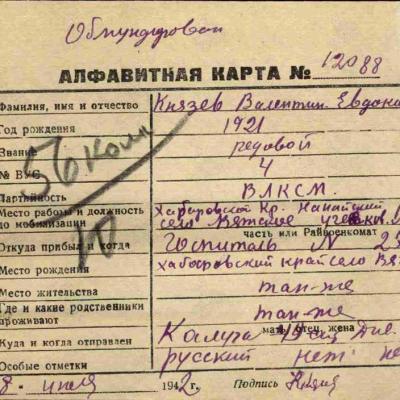 Обмундирован
АЛФАВИТНАЯ КАРТА № 12088
Фамилия, имя и отчество Князев Валентин Евдоки
Год рождения 1921
Звание рядовой
№ ВУС 4
56 Колн
Партийность ВЛКСМ.
Место работы и должность до мобилизации Хабаровской Кр. Нанайский село Вятское
часть или Райвоенкомат
Откуда прибыл и когда Госпиталь N
Место рождения Хабаровский край село Вя
Место жительства там-же
Где и какие родственники проживают там-же
мать, отец, жена
Куда и когда отправлен Калуга
Особые отметки русский нет не
8. июля 1942 г. Подпись